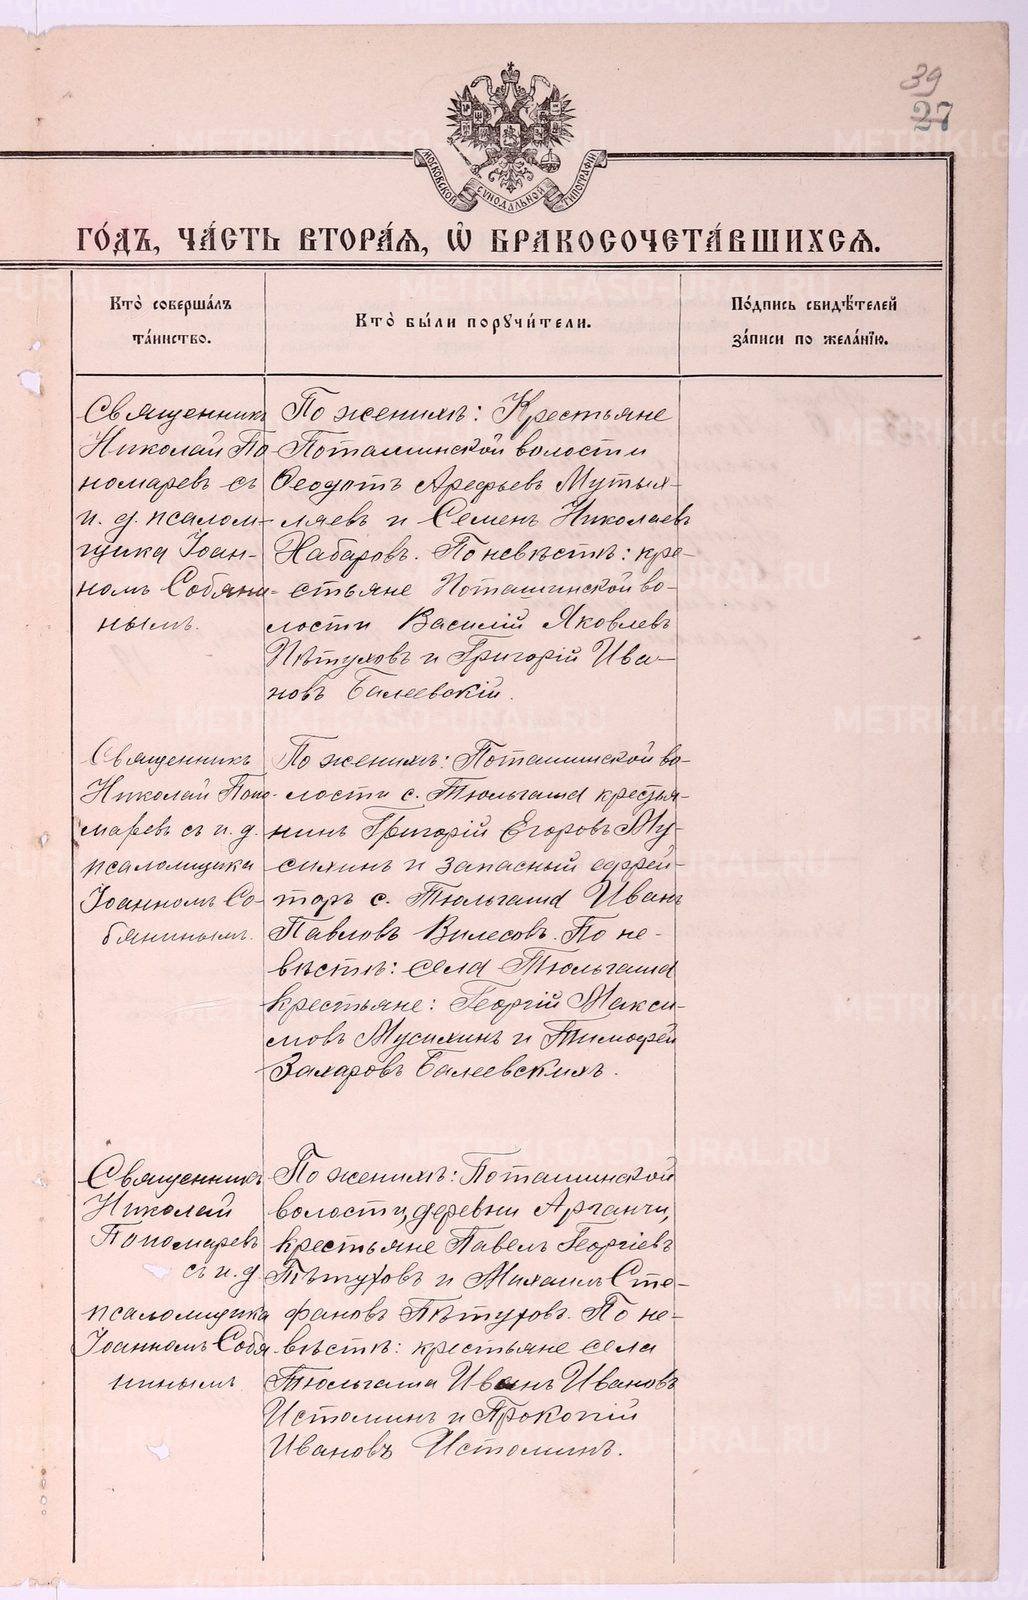 39
27
МОСКОВСКОЙ СУНОДАЛЬНОЙ ТИПОГРАФІИ
ГО́ДЪ, ЧА́СТЬ ВТОРА́Я, Ѡ҆ БРАКОСОЧЕТА́ВШИХСЯ.
Кто̀ соверша́лъ
та́инство.
Кто̀ бы́ли порꙋчи́тели.
По́дпись свидѣ́телей
за́писи по жела́нїю.
Священникъ
Николай По-
номаревъ съ
и. д. псалом-
щика Іоан-
номъ Собяни-
нымъ.
По женихѣ: Крестьяне
Поташинской волости
Ѳеодотъ Арефьевъ Мутых-
ляевъ и Семенъ Николаевъ
Хабаровъ. По невѣстѣ: кре-
стьяне Поташинской во-
лости Василій Яковлевъ
Пѣтуховъ и Григорій Ива-
новъ Балеевскій.
Священникъ
Николай Поно-
маревъ съ и. д.
псаломщика
Іоанномъ Со-
бянинымъ.
По женихѣ: Поташинской во-
лости с. Тюльгаша крестья-
нинъ Григорій Егоровъ Му-
сихинъ и запасный ефрей-
торъ с. Тюльгаша Иванъ
Павловъ Вилесовъ. По не-
вѣстѣ: села Тюльгаша
крестьяне: Георгій Макси-
мовъ Мусихинъ и Тимофей
Захаровъ Балеевскихъ.
Священникъ
Николай
Пономаревъ
съ и. д.
псаломщика
Іоанномъ Собя-
нинымъ
По женихѣ: Поташинской
волости, деревни Арганчи,
крестьяне Павелъ Георгіевъ
Пѣтуховъ и Михаилъ Сте-
фановъ Пѣтуховъ. По не-
вѣстѣ: крестьяне села
Тюльгаша Иванъ Ивановъ
Истоминъ и Прокопій
Ивановъ Истоминъ.